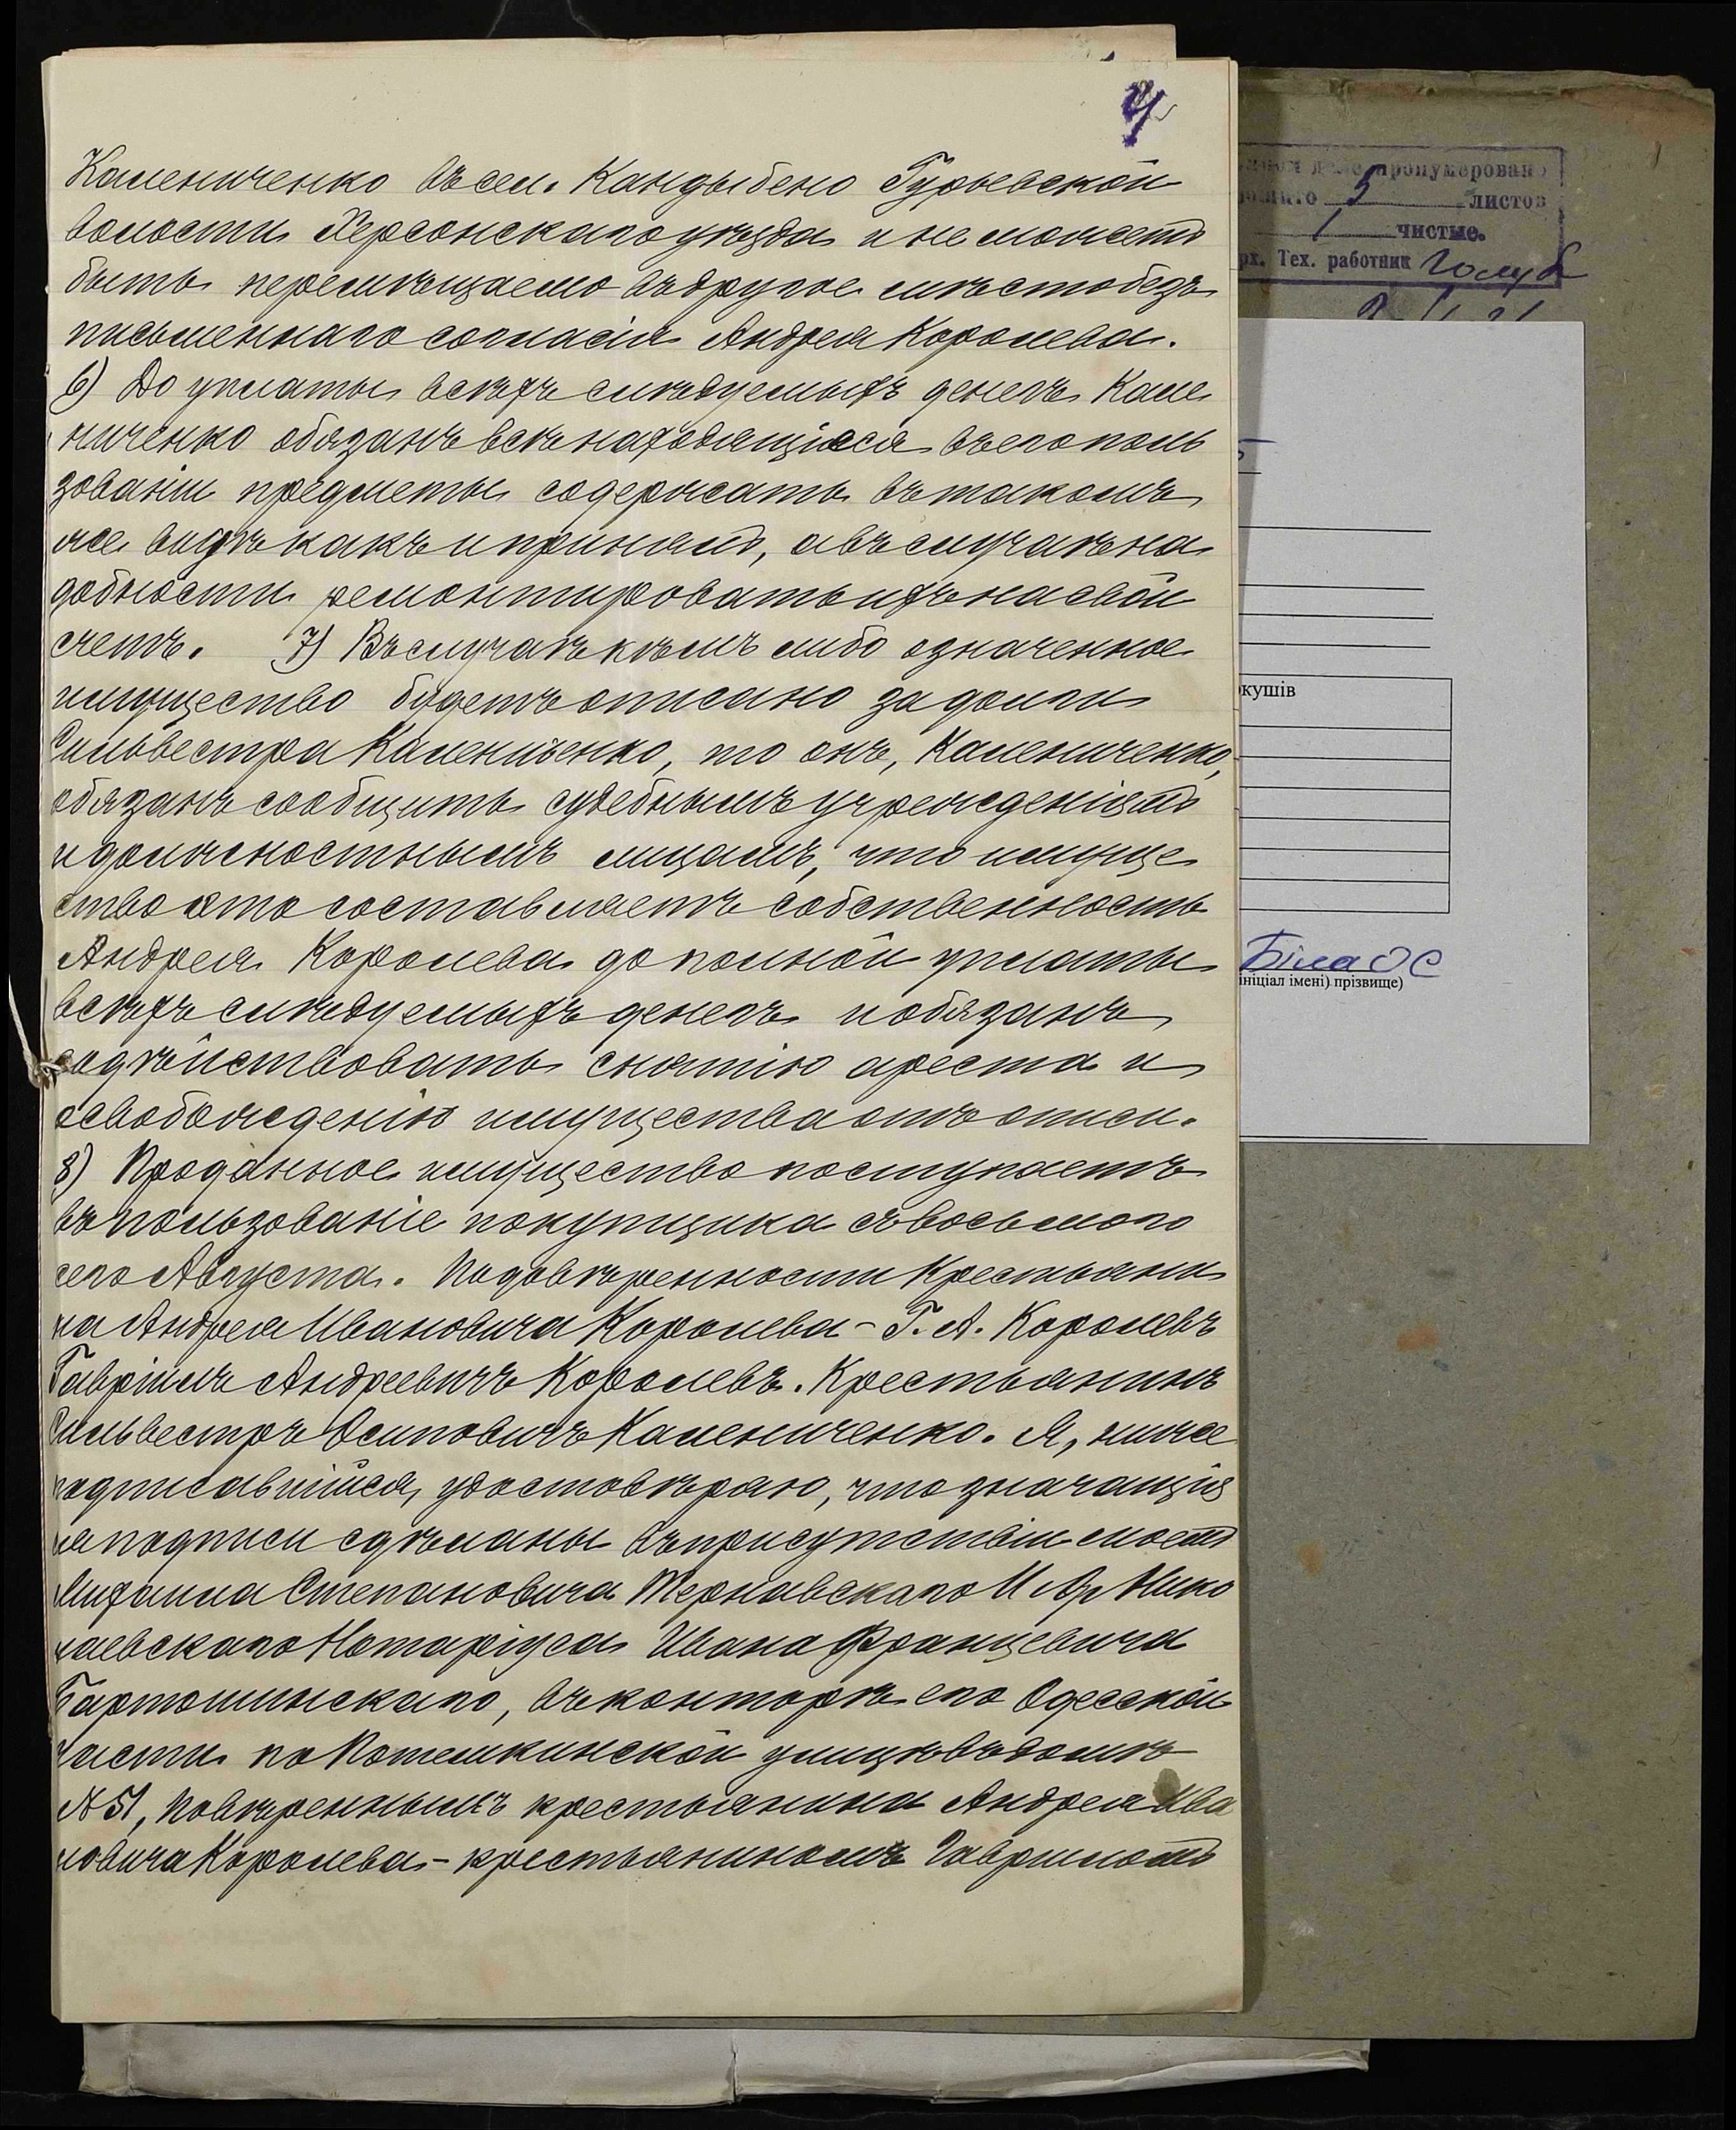 4
Калениченко въ сел. Кандыбено Гурьевской
волости Херсонскаго уѣзда и не можетъ
быть перемѣщаемо въ другое мѣсто безъ
письменнаго согласія Андрея Королева.
6) До уплаты всѣхъ слѣдуемыхъ денегъ Кале
ниченко обязанъ всѣ находящіяся въ его поль
зованіи предметы содержать въ такомъ
же видѣ какъ и принялъ, а въ случаѣ на
добности ремонтировать ихъ на свой
счетъ. 7) Въ случаѣ кѣмъ либо означенное
имущество будетъ описано за долги
Сильвестра Калениченко, то онъ, Калениченко,
обязанъ сообщить судебнымъ учрежденіямъ
и должностнымъ лицамъ, что имуще
ство это составляетъ собственность
Андрея Королева до полной уплаты
всѣхъ слѣдуемыхъ денегъ и обязанъ
содѣйствовать снятію ареста и
освобожденію имущества отъ описи.
8) Проданное имущество поступаетъ
въ пользованіе покупщика съ восьмого
сего Августа. По довѣренности Крестьяни
на Андрея Ивановича Королева - Г. А. Королевъ
Гавріилъ Андреевичъ Королевъ. Крестьянинъ
Сильвестръ Осиповичъ Калениченко. Я, ниже
подписавшійся, удостовѣряю, что значащія
ся подписи сдѣланы въ присутствіи моемъ
Михаила Степановича Тернавскаго И др Нико
лаевскаго Нотаріуса Ивана Францевича
Бартошинскаго, въ конторѣ его Одесской
части по Потемкинской улицѣ въ домѣ
№ 51, повѣреннымъ крестьянина Андрея Ива
новича Королева - крестьяниномъ Гавриломъ
пронумеровано
5 листов
1 чистые.
Тех. работник Голуб
кушів
Біла О С
ініціал імені) прізвище)